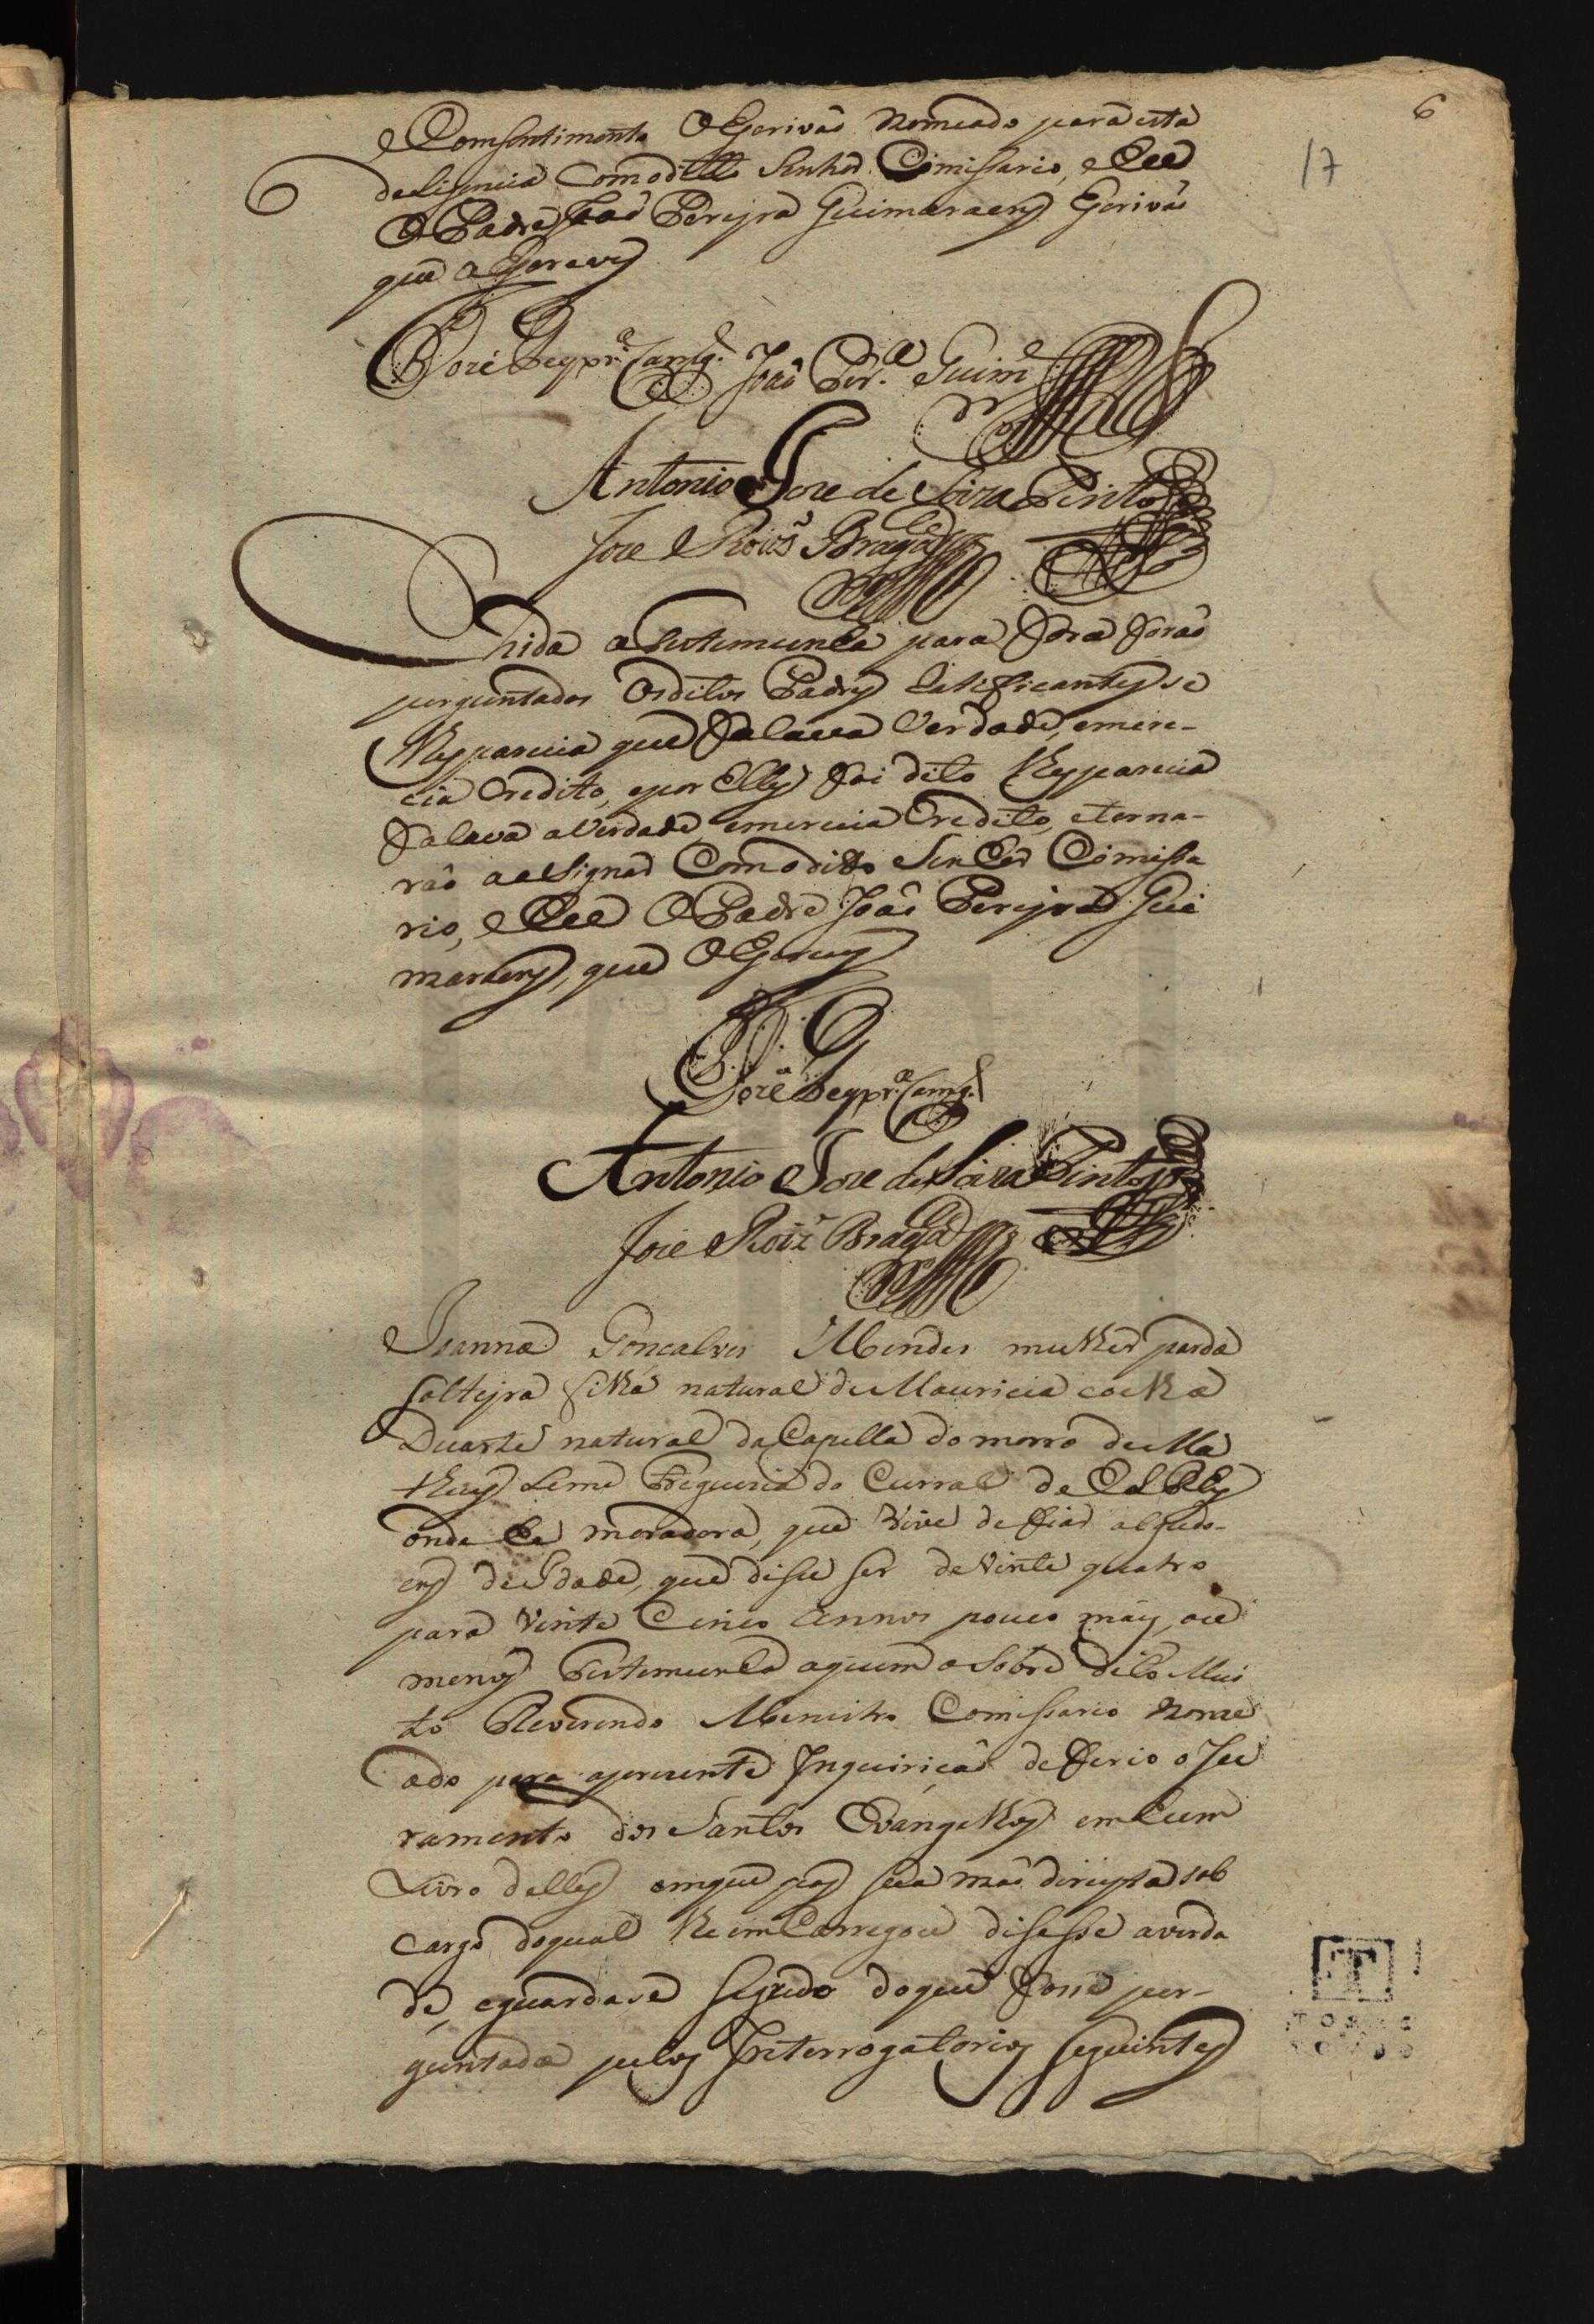 6
17
Comsentimento O Escrivaõ Nomeado para esta
deligencia Com o ditto Senhor Comissario, e Eu
O Padre Joaõ Pereyra Guimaraens Escrivaõ
que o Escrevy
Jozé Joaõ Per.ª Guim
Antonio Joze de Soiza Pinto
Joze Roiz Braga
hida a testemunha para fora foraõ
perguntados Os ditos Padres Ratificantes se
lhes parecia que falava Verdade, e mere-
cia Credito, e por Elles foi dito lhes parecia
falava a Verdade, e merecia Credito, e torna-
raõ a assignar Com o ditto Senhor Comissa
rio, e Eu O Padre Joaõ Pereyra Gui
maraens, que O Escrevy
Jozé
Antonio Joze de Soiza Pinto
Joze Roiz Braga
Joanna Goncalves Mendes mulher parda
solteyra filha natural de Mauricia
Duarte natural da Capella do morro de Ma
theus Leme Freguezia do Curral de El Rey
onde he moradora, que Vive de fiar algodo-
ens de Idade, que disse ser de Vinte quatro
para Vinte Cinco Annos pouco mais, ou
menos testemunha a quem o Sobre dito Mui
to Reverendo Menistro Comissario Nome
ado para a prezente Inquiriçaõ deferio o Ju
ramento dos Santos Evangelhos em hum
Livro delles em que pos sua maõ direyta sob
cargo do qual lhe emCarregou disesse a verda
de, e guardase segredo do que fosse per-
guntada pelos Interrogatorios seguintes
TT
TORRE
TOMBO